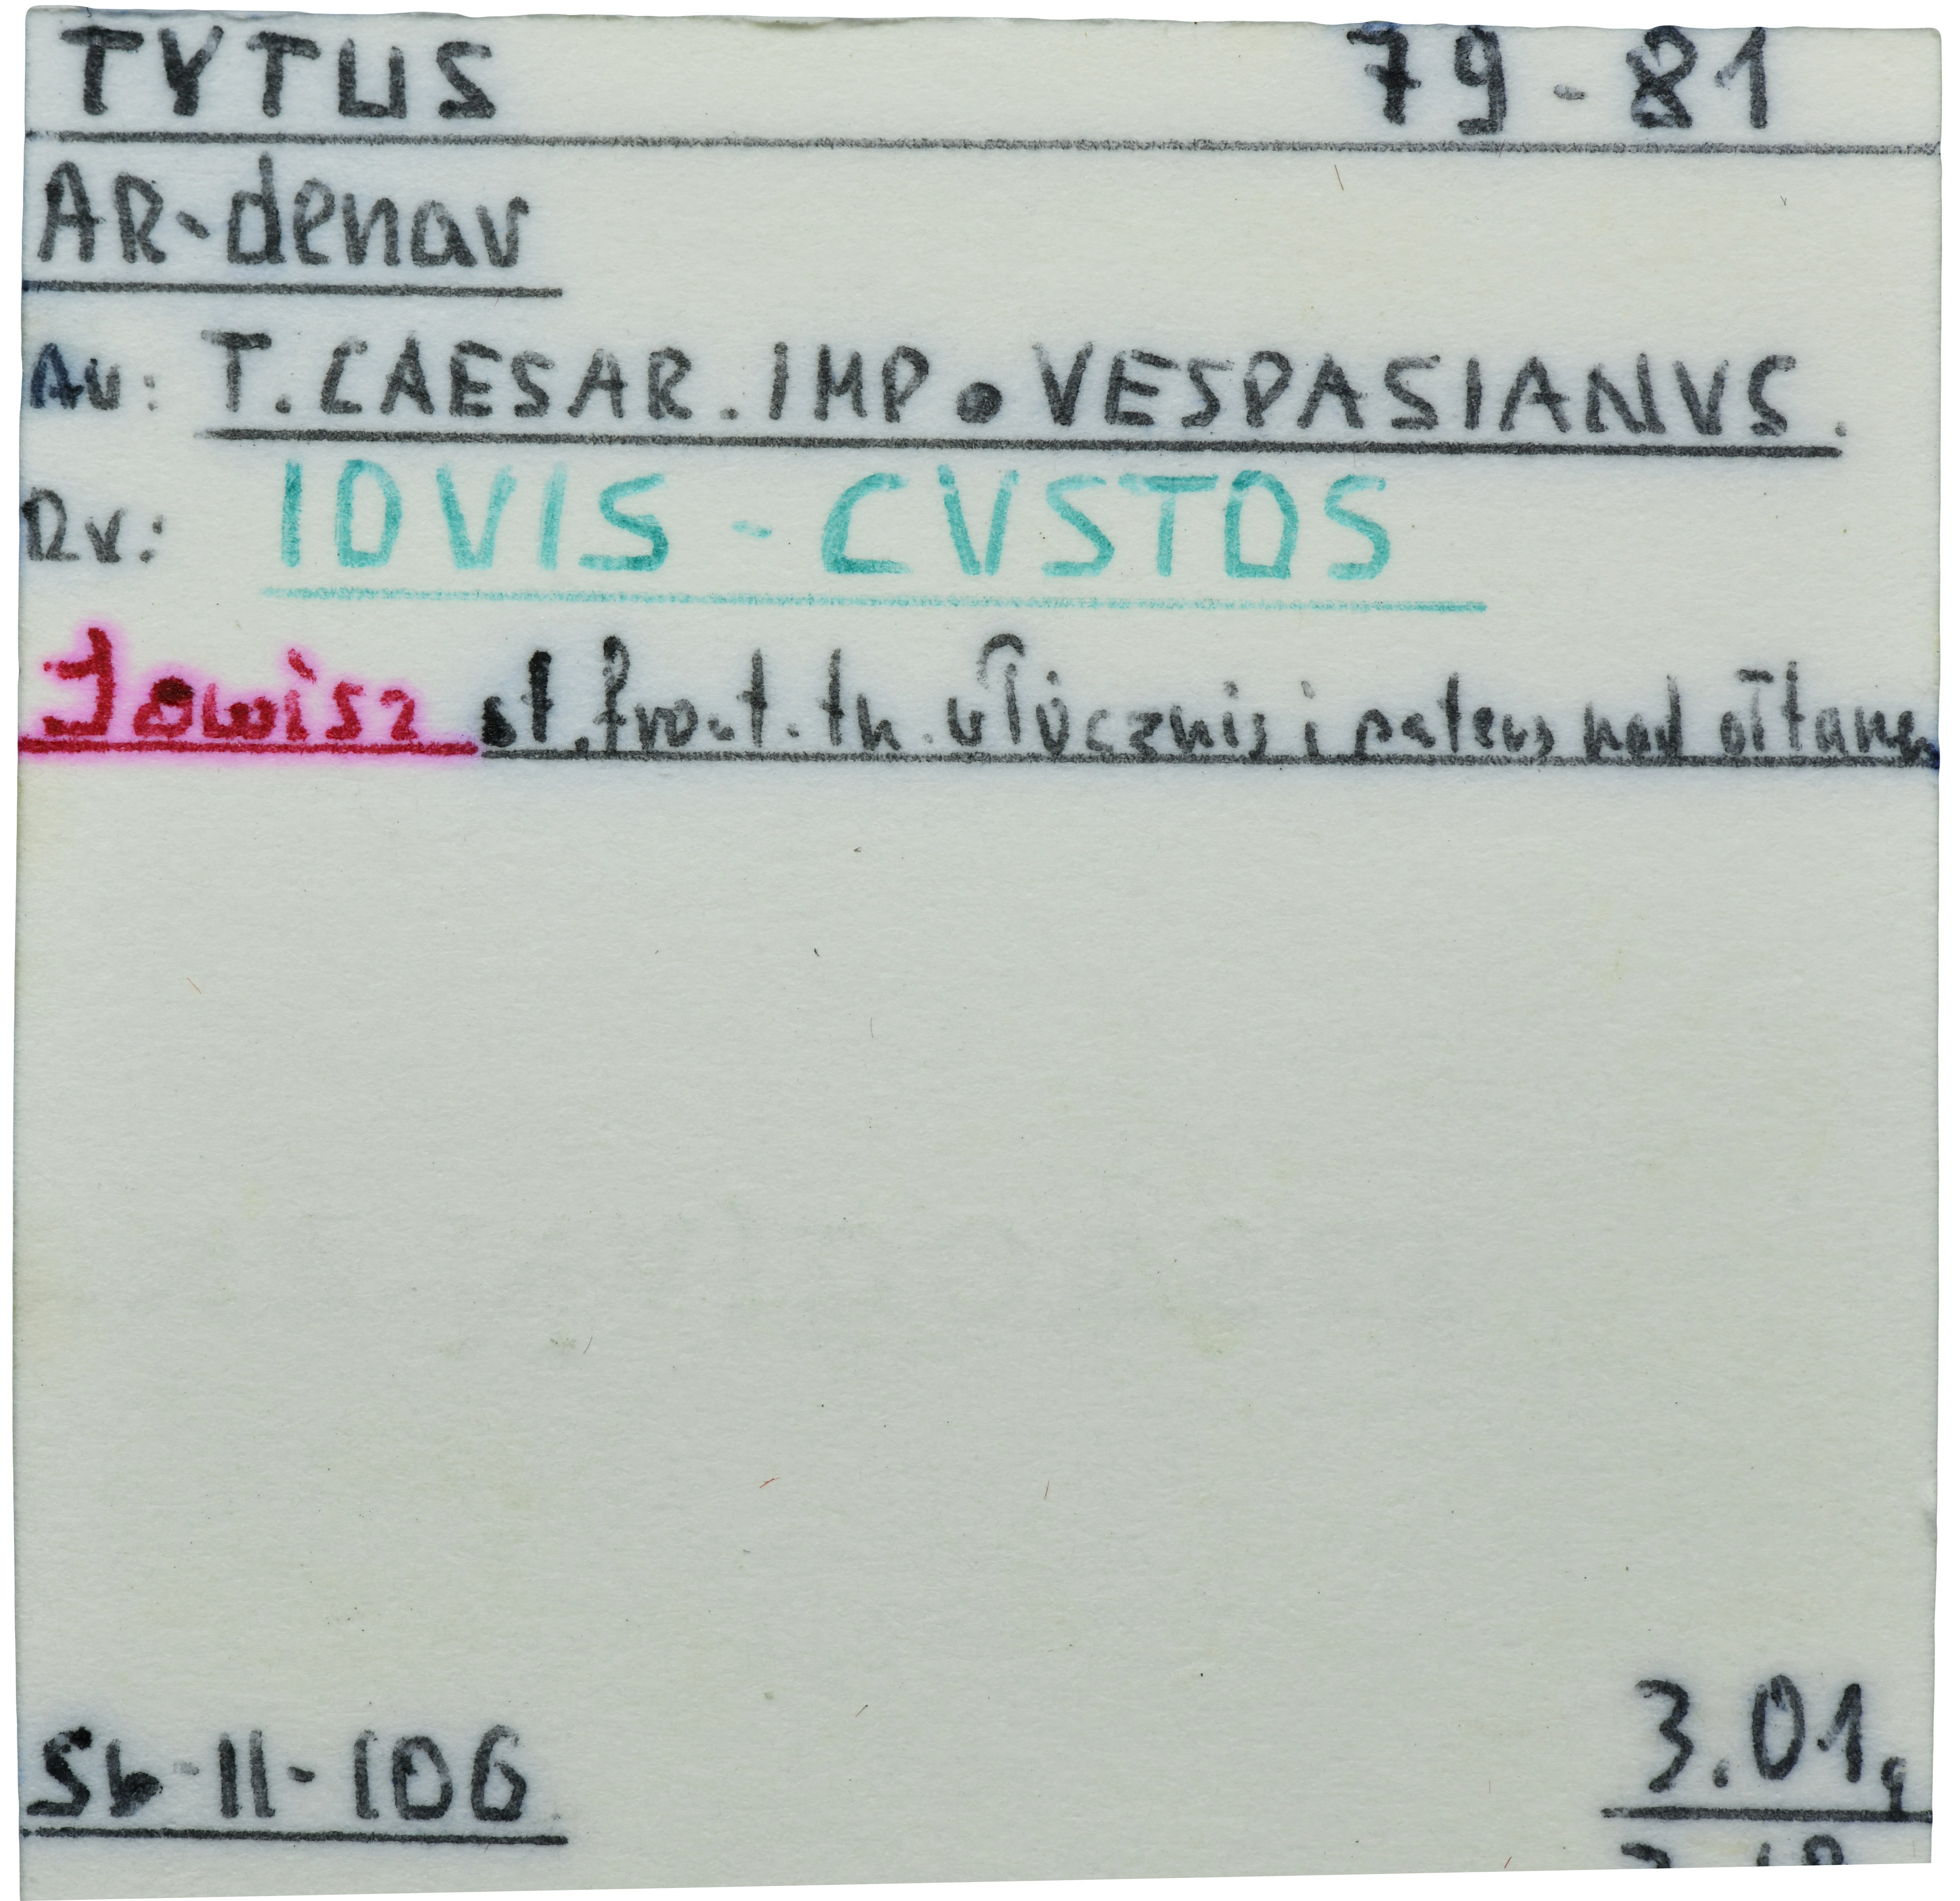 TYTUS 79-81
AR-denar
Av: T. CAESAR. IMP • VESPASIANVS.
Rv: IOVIS - CVSTOS
Jowisz st. front. th. włócznię i paterę nad ołtarzem
Sb-II-106
3.01g